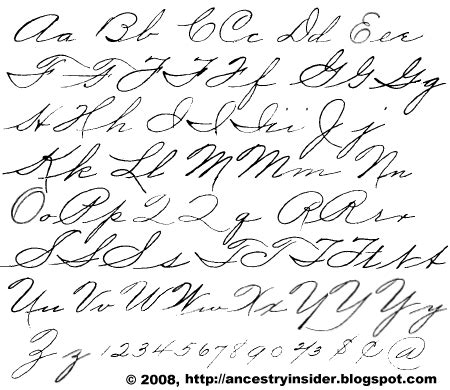 Aa Bb CCc Dd Eee
FFFFFf GGGg
HHh IIIii Jj
Kk Ll MMm Nn
Oo Pp 22q RRrr
SSSs TTTTttt
Uu Vv WWw Xx YYYy
Zz 1234567890 2/3 $ ¢ @
© 2008, http://ancestryinsider.blogspot.com